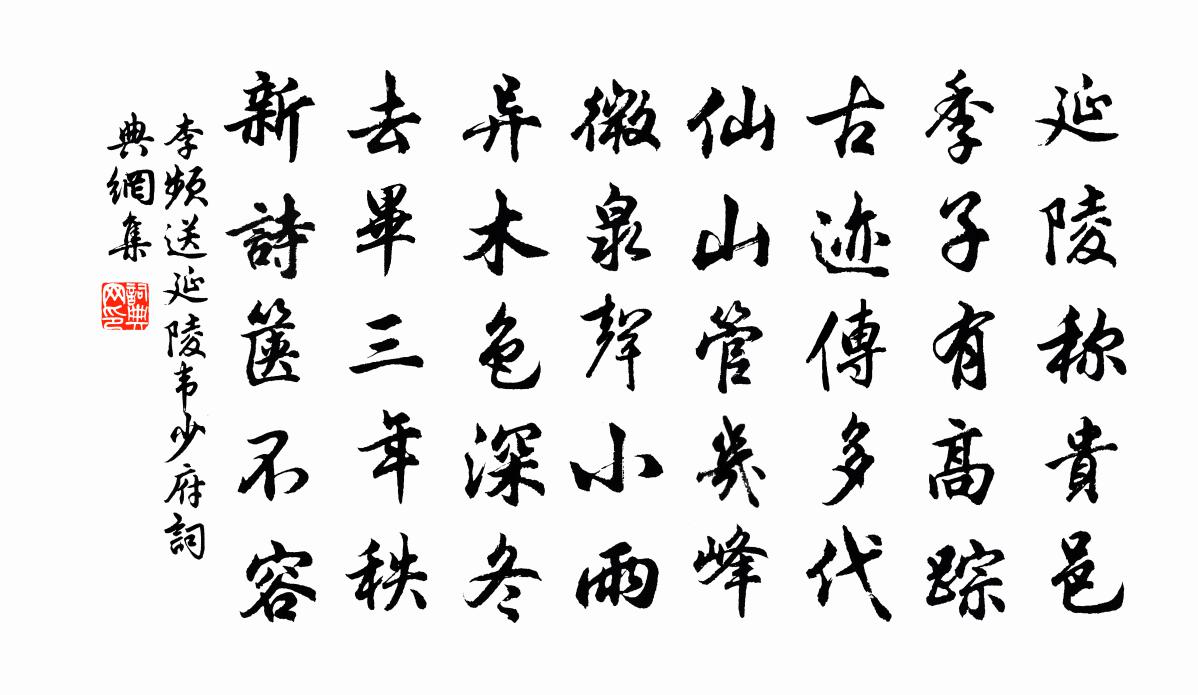 延陵称貴邑
季子有高踪
古迹傳多代
仙山管幾峰
微泉聲小雨
异木色深冬
去畢三年秩
新詩篋不容
李频送延陵韦少府詞
典網集
詞典
网印